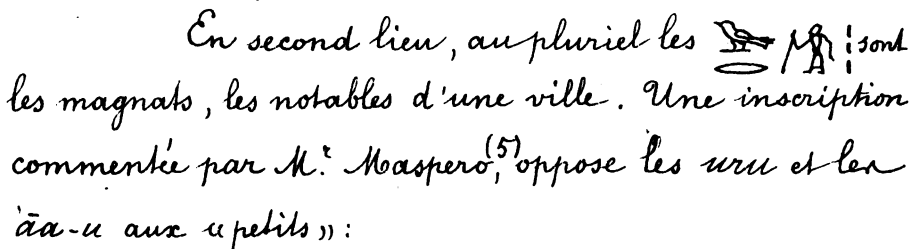 En second lieu, au pluriel les 𓅨𓂋𓀗𓏪 sont
les magnats, les notables d'une ville. Une inscription
commentée par Mr. Maspero,(5) oppose les uru et les
'āa-u aux « petits » :